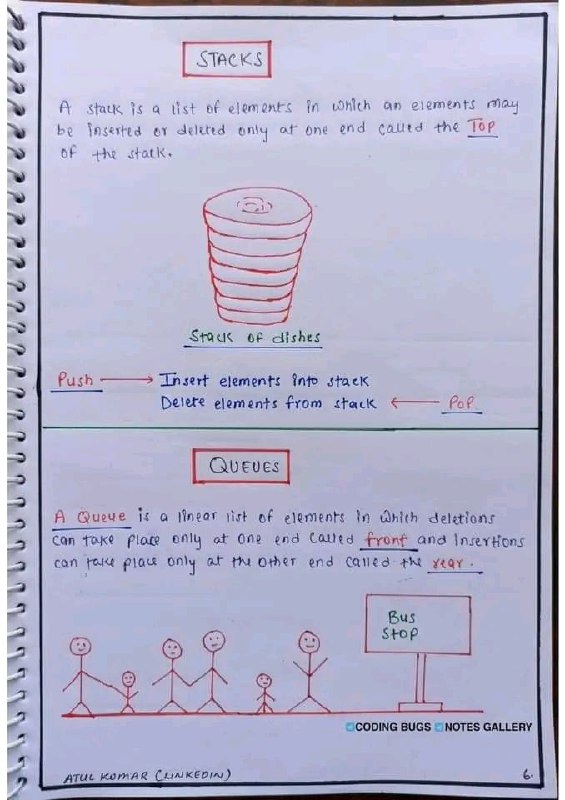 STACKS
A stack is a list of elements in which an elements may
be inserted or deleted only at one end called the Top
of the stack.
Stack of dishes
Push → Insert elements into stack
Delete elements from stack ← Pop
QUEUES
A Queue is a linear list of elements in which deletions
can take place only at one end called front and insertions
can take place only at the other end called the rear.
Bus
Stop
CODING BUGS NOTES GALLERY
ATUL KUMAR (LINKEDIN)
6.